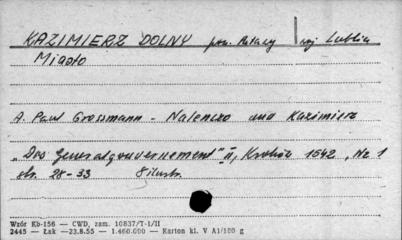 KAZIMIERZ DOLNY pow. Puławy woj Lublin
Miasto
A. Paul Grossmann - Nalenczo und Kazimierz
„Das Generalgouvernement" II, Kraków 1942, Nr 1
str. 28-33 8 ilustr.
Wzór Kb-156 — CWD, zam. 10837/T-1/II
2445 — Łak —23.8.55 — 1.460.000 — Karton kl. V A1/180 g